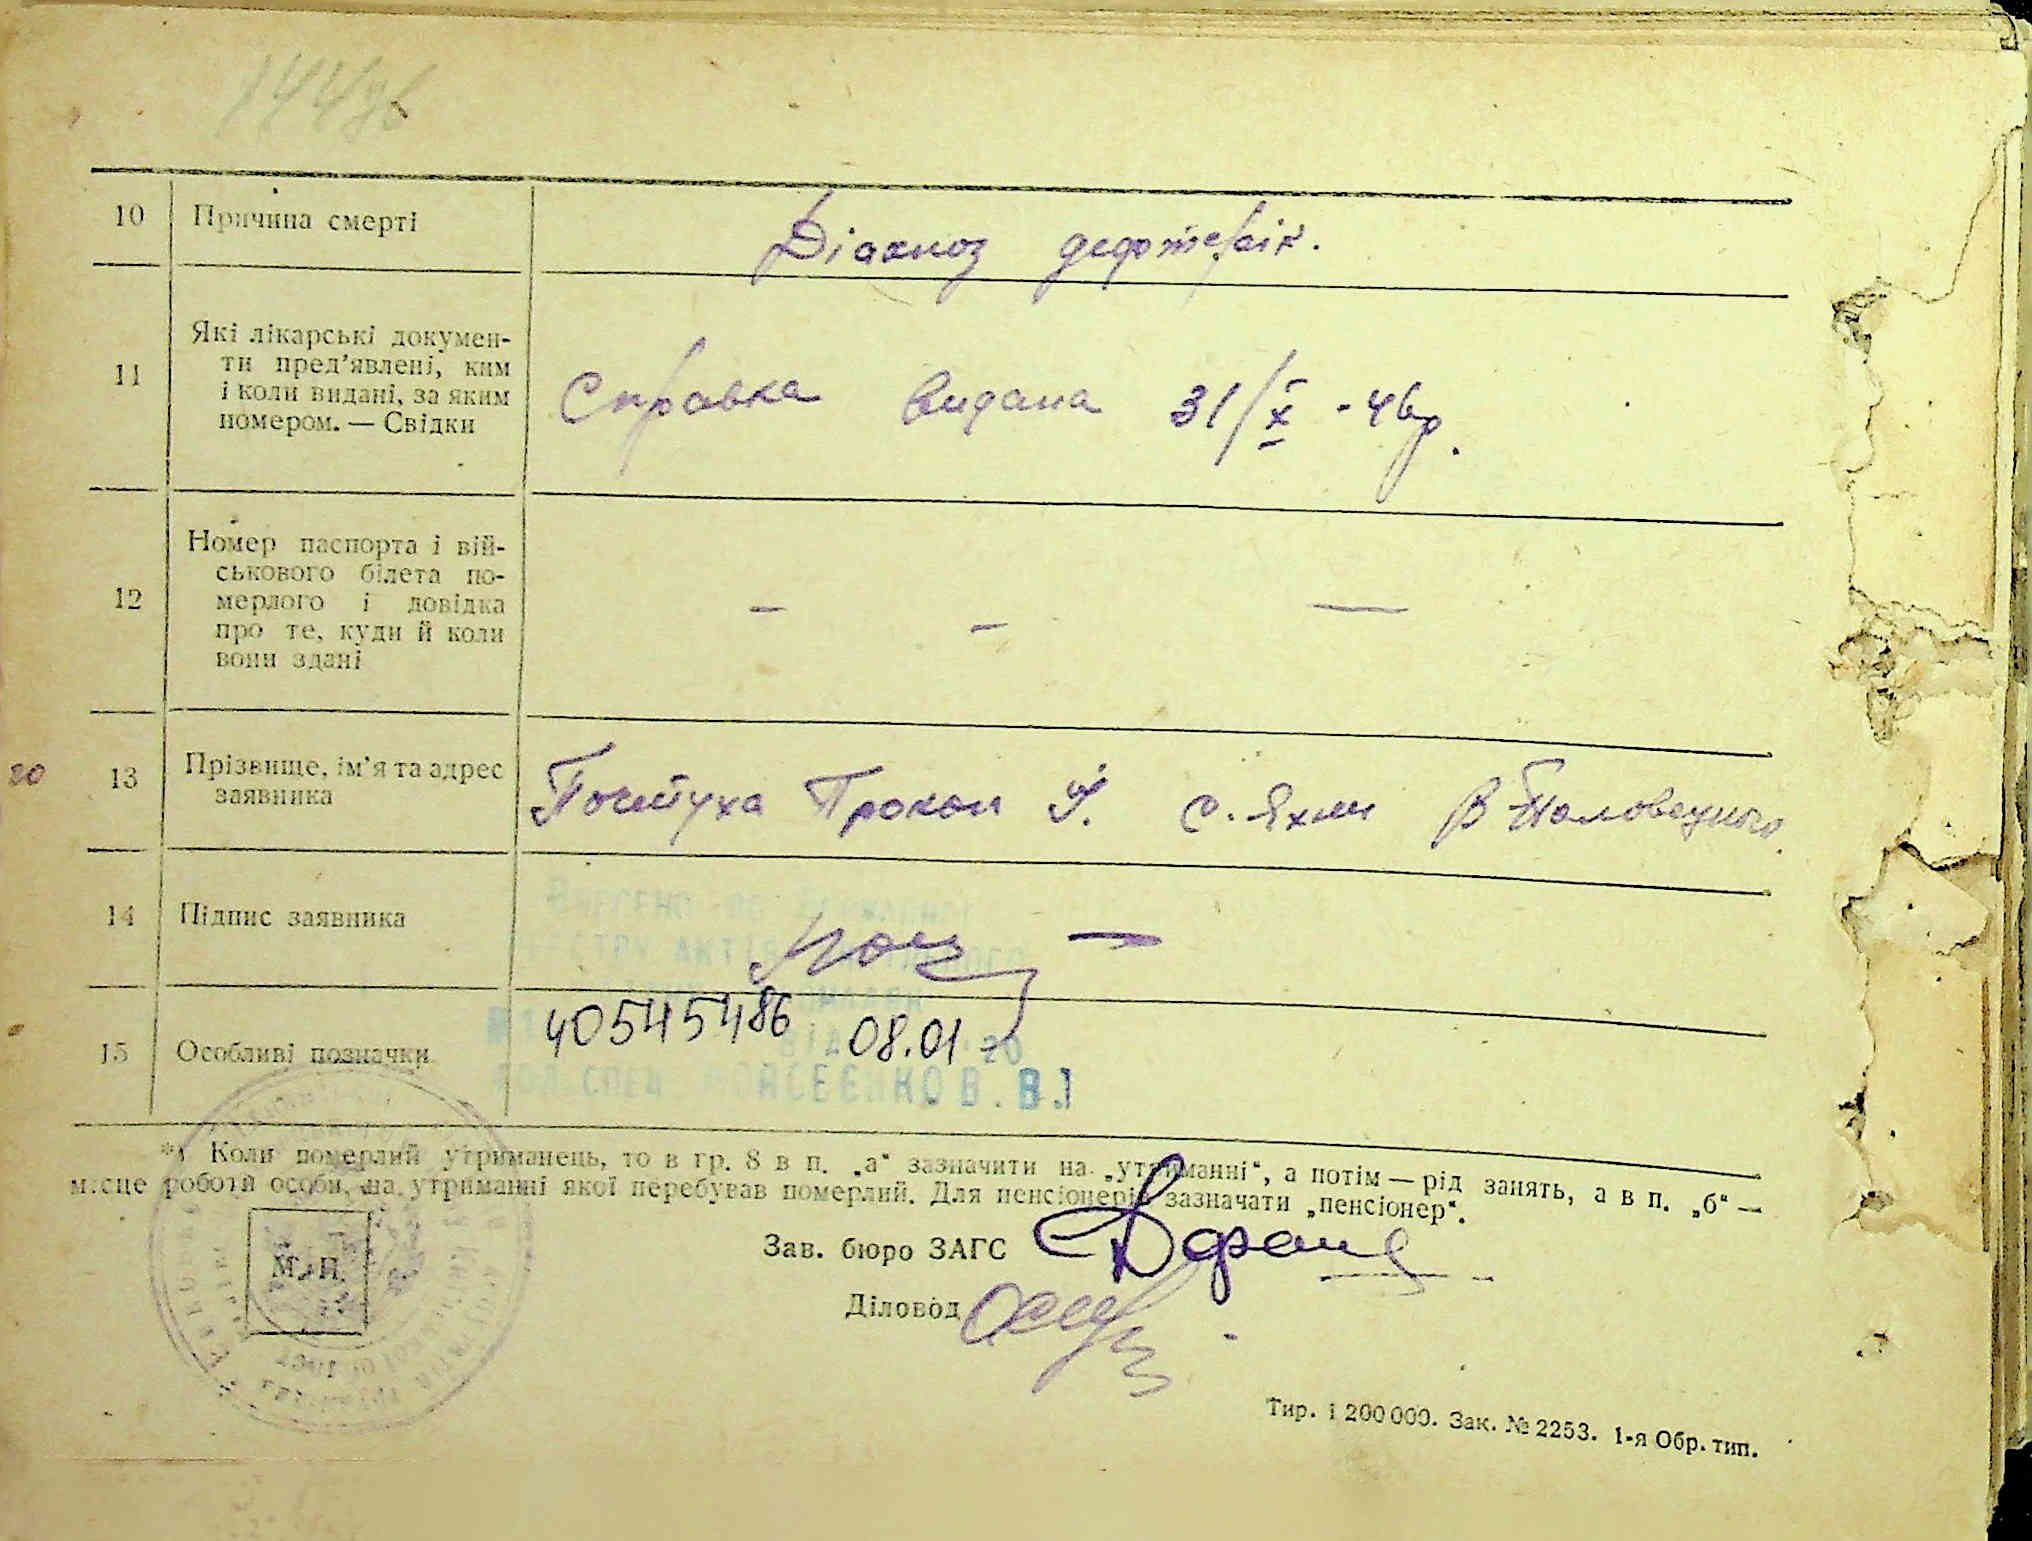 144зв
10 Причина смерті Діагноз дефтерія.
11 Які лікарські докумен-
ти пред'явлені, ким
і коли видані, за яким
номером. — Свідки
Справка видана 31/X - 46р.
12 Номер паспорта і вій-
ськового білета по-
мерлого і довідка
про те, куди й коли
вони здані
— — —
20 13 Прізвище, ім'я та адрес
заявника
Прокоп с. В-Половецького
14 Підпис заявника
15 Особливі позначки
40545486 08.01 20
В.І
*) Коли померлий утриманець, то в гр. 8 в п. „а“ зазначити на „утриманні“, а потім — рід занять, а в п. „б“ —
місце роботи особи, на утриманні якої перебував померлий. Для пенсіонерів зазначати „пенсіонер“.
М. П.
Зав. бюро ЗАГС
Діловод
Тир. 1 200 000. Зак. № 2253. 1-я Обр. тип.